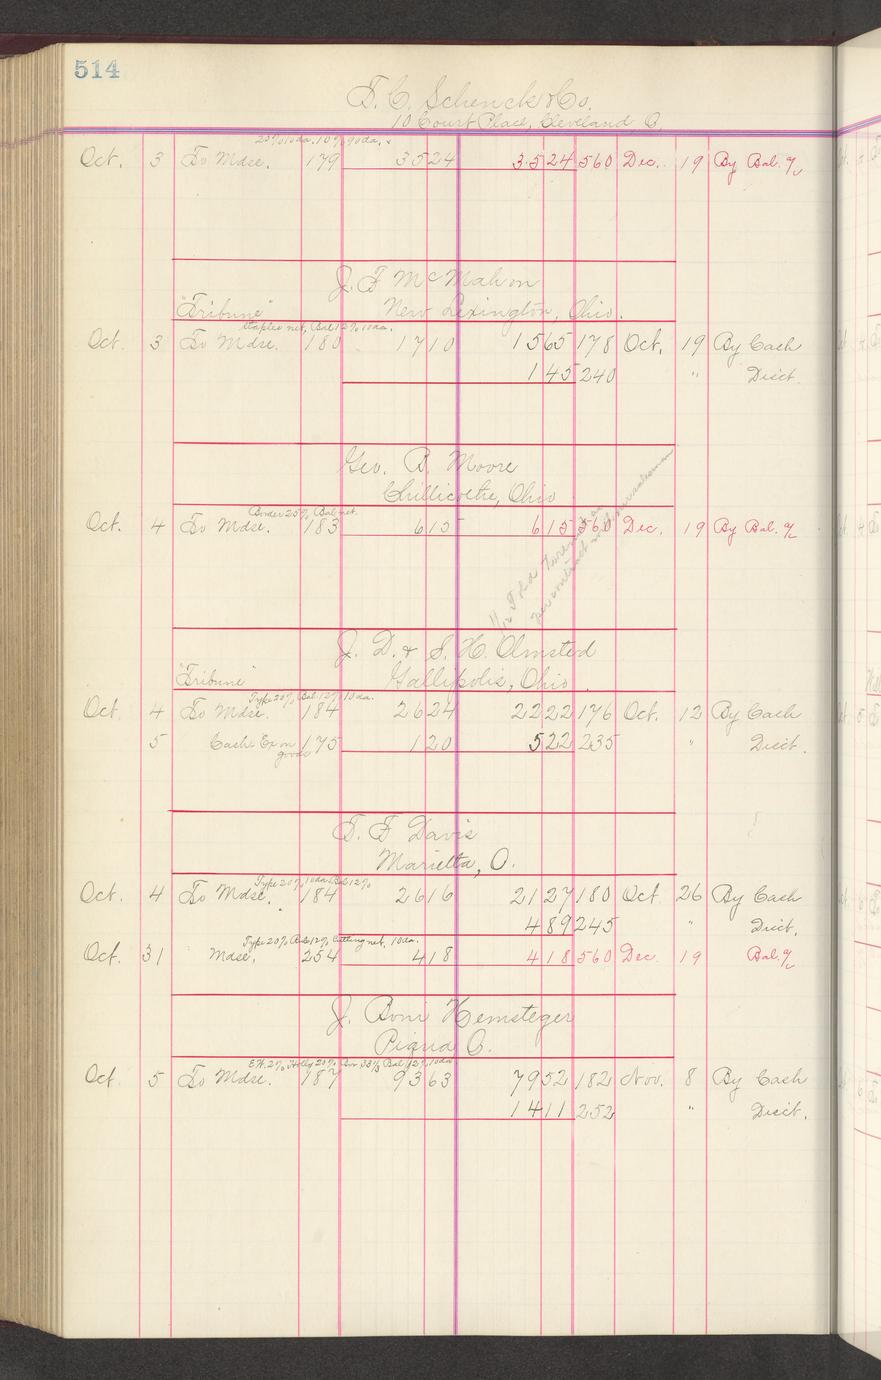 514
T. C. Schenck & Co.
10 Court Place, Cleveland, O.
20% 10 da. 10% 90 da.
Oct. 3 To Mdse. 179 35 24 35 24 560 Dec. 19 By Bal. %
J. F. McMahon
"Tribune" New Lexington, Ohio.
Staples net, Bal 12% 10 da.
Oct. 3 To Mdse. 180 17 10 15 65 178 Oct. 19 By Cash
1 45 240 " Disct.
Geo. B. Moore
Chillicothe, Ohio
Border 25% Bal net.
Oct. 4 To Mdse. 183 6 15 6 15 560 Dec. 19 By Bal. %
per contract with our salesman
J. D. & S. H. Olmsted
"Tribune" Gallipolis, Ohio.
Type 20% Bal 12% 10 da.
Oct 4 To Mdse. 184 26 24 22 22 176 Oct. 12 By Cash
5 Cash Ex on goods 175 1 20 5 22 235 " Disct.
T. F. Davis
Marietta, O.
Type 20% 10 da. Bal 12%
Oct. 4 To Mdse. 184 26 16 21 27 180 Oct 26 By Cash
4 89 245 " Disct.
Type 20% Rule 12% Cutting net, 10 da.
Oct. 31 Mdse. 254 4 18 4 18 560 Dec. 19 Bal. %
J. Boni Hemsteger
Piqua O.
E.W. 2% Holly 20% 33⅓ Bal 12% 10 da
Oct. 5 To Mdse. 187 93 63 79 52 182 Nov. 8 By Cash
14 11 252 " Disct.